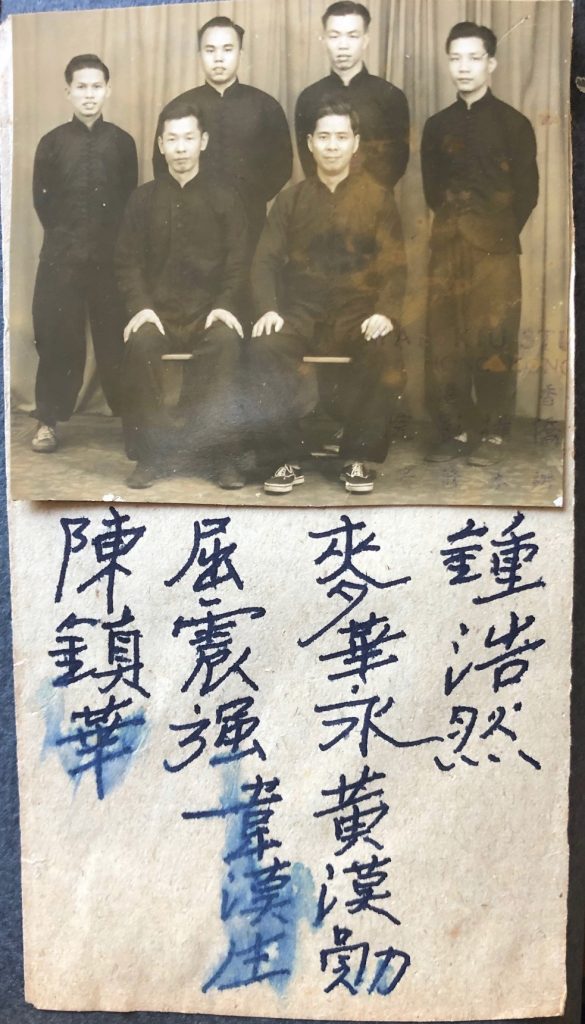 KIU STU
鍾浩然
麥華永 黄漢勛
屈震强 韋漢生
陳鎮華